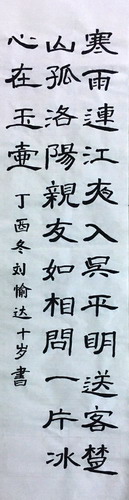 寒雨連江夜入吳平明送客楚
山孤洛陽親友如相問一片冰
心在玉壺
丁酉冬刘愉达十岁書